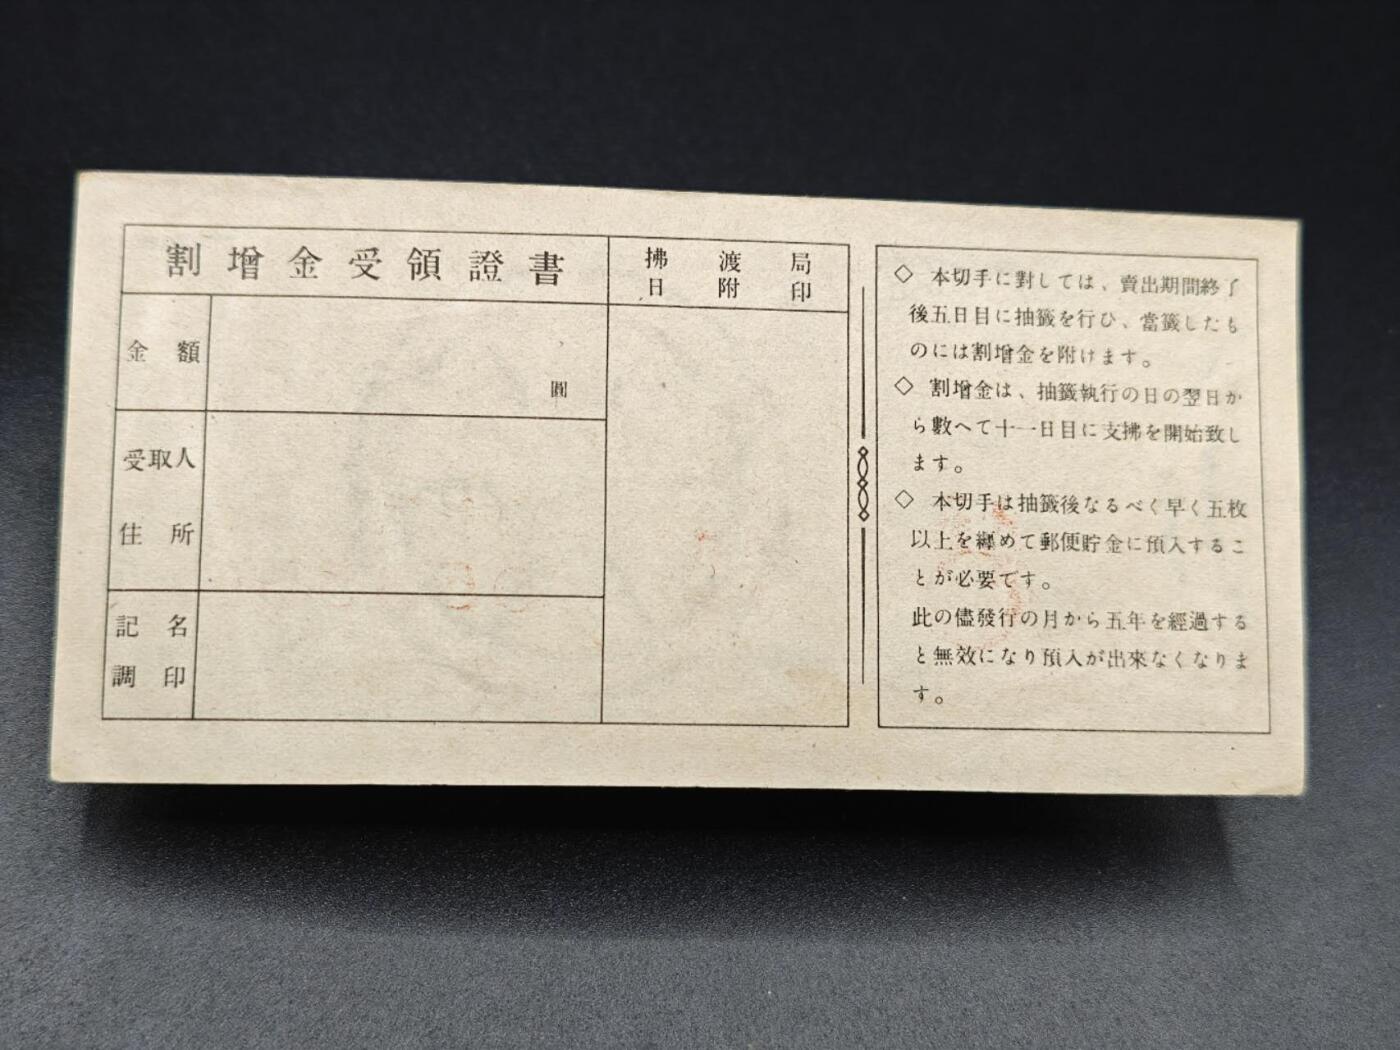 割增金受領證書
金額
圓
受取人
住所
記名
調印
拂渡局
日附印
◇ 本切手に對しては、賣出期間終了
後五日目に抽籤を行ひ、當籤したも
のには割增金を附けます。
◇ 割增金は、抽籤執行の日の翌日か
ら數へて十一日目に支拂を開始致し
ます。
◇ 本切手は抽籤後なるべく早く五枚
以上を纏めて郵便貯金に預入するこ
とが必要です。
此の儘發行の月から五年を經過する
と無效になり預入が出來なくなりま
す。